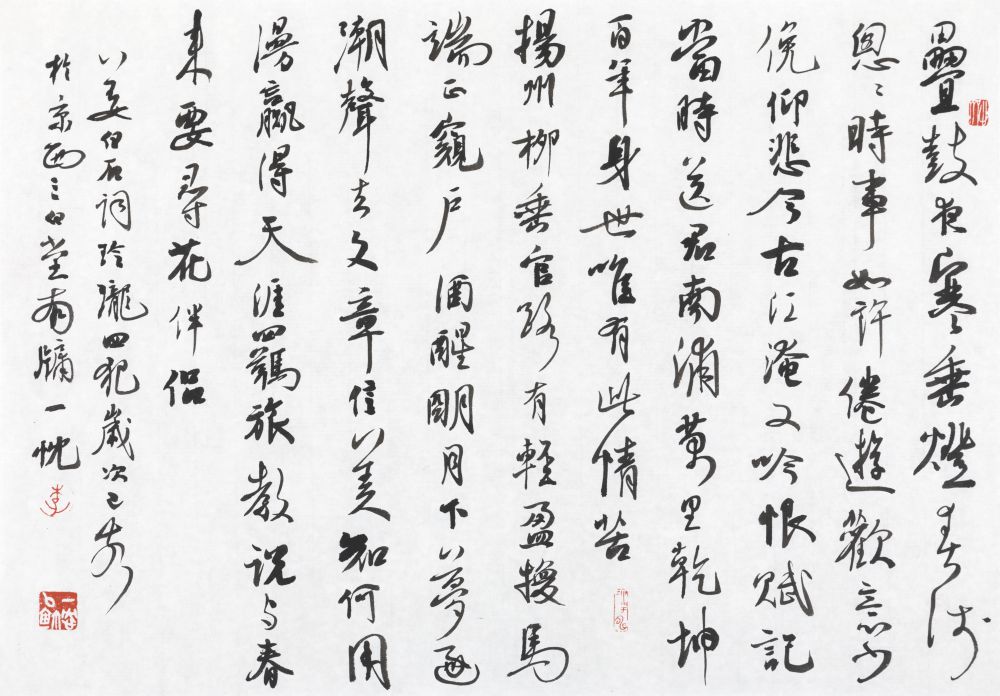 疊鼓夜寒垂燈春淺
怱〻時事如許倦遊歡意少
俛仰悲今古江淹又吟恨賦記
當時送君南浦萬里乾坤
百年身世唯有此情苦
揚州柳垂官路有輕盈換馬
端正窺戶酒醒明月下夢逐
潮聲去文章信美知何用
漫贏得天涯羈旅教説与春
来要尋花伴侶
姜白石詞玲瓏四犯歲次己亥
於京西三白堂南牖一忱
李